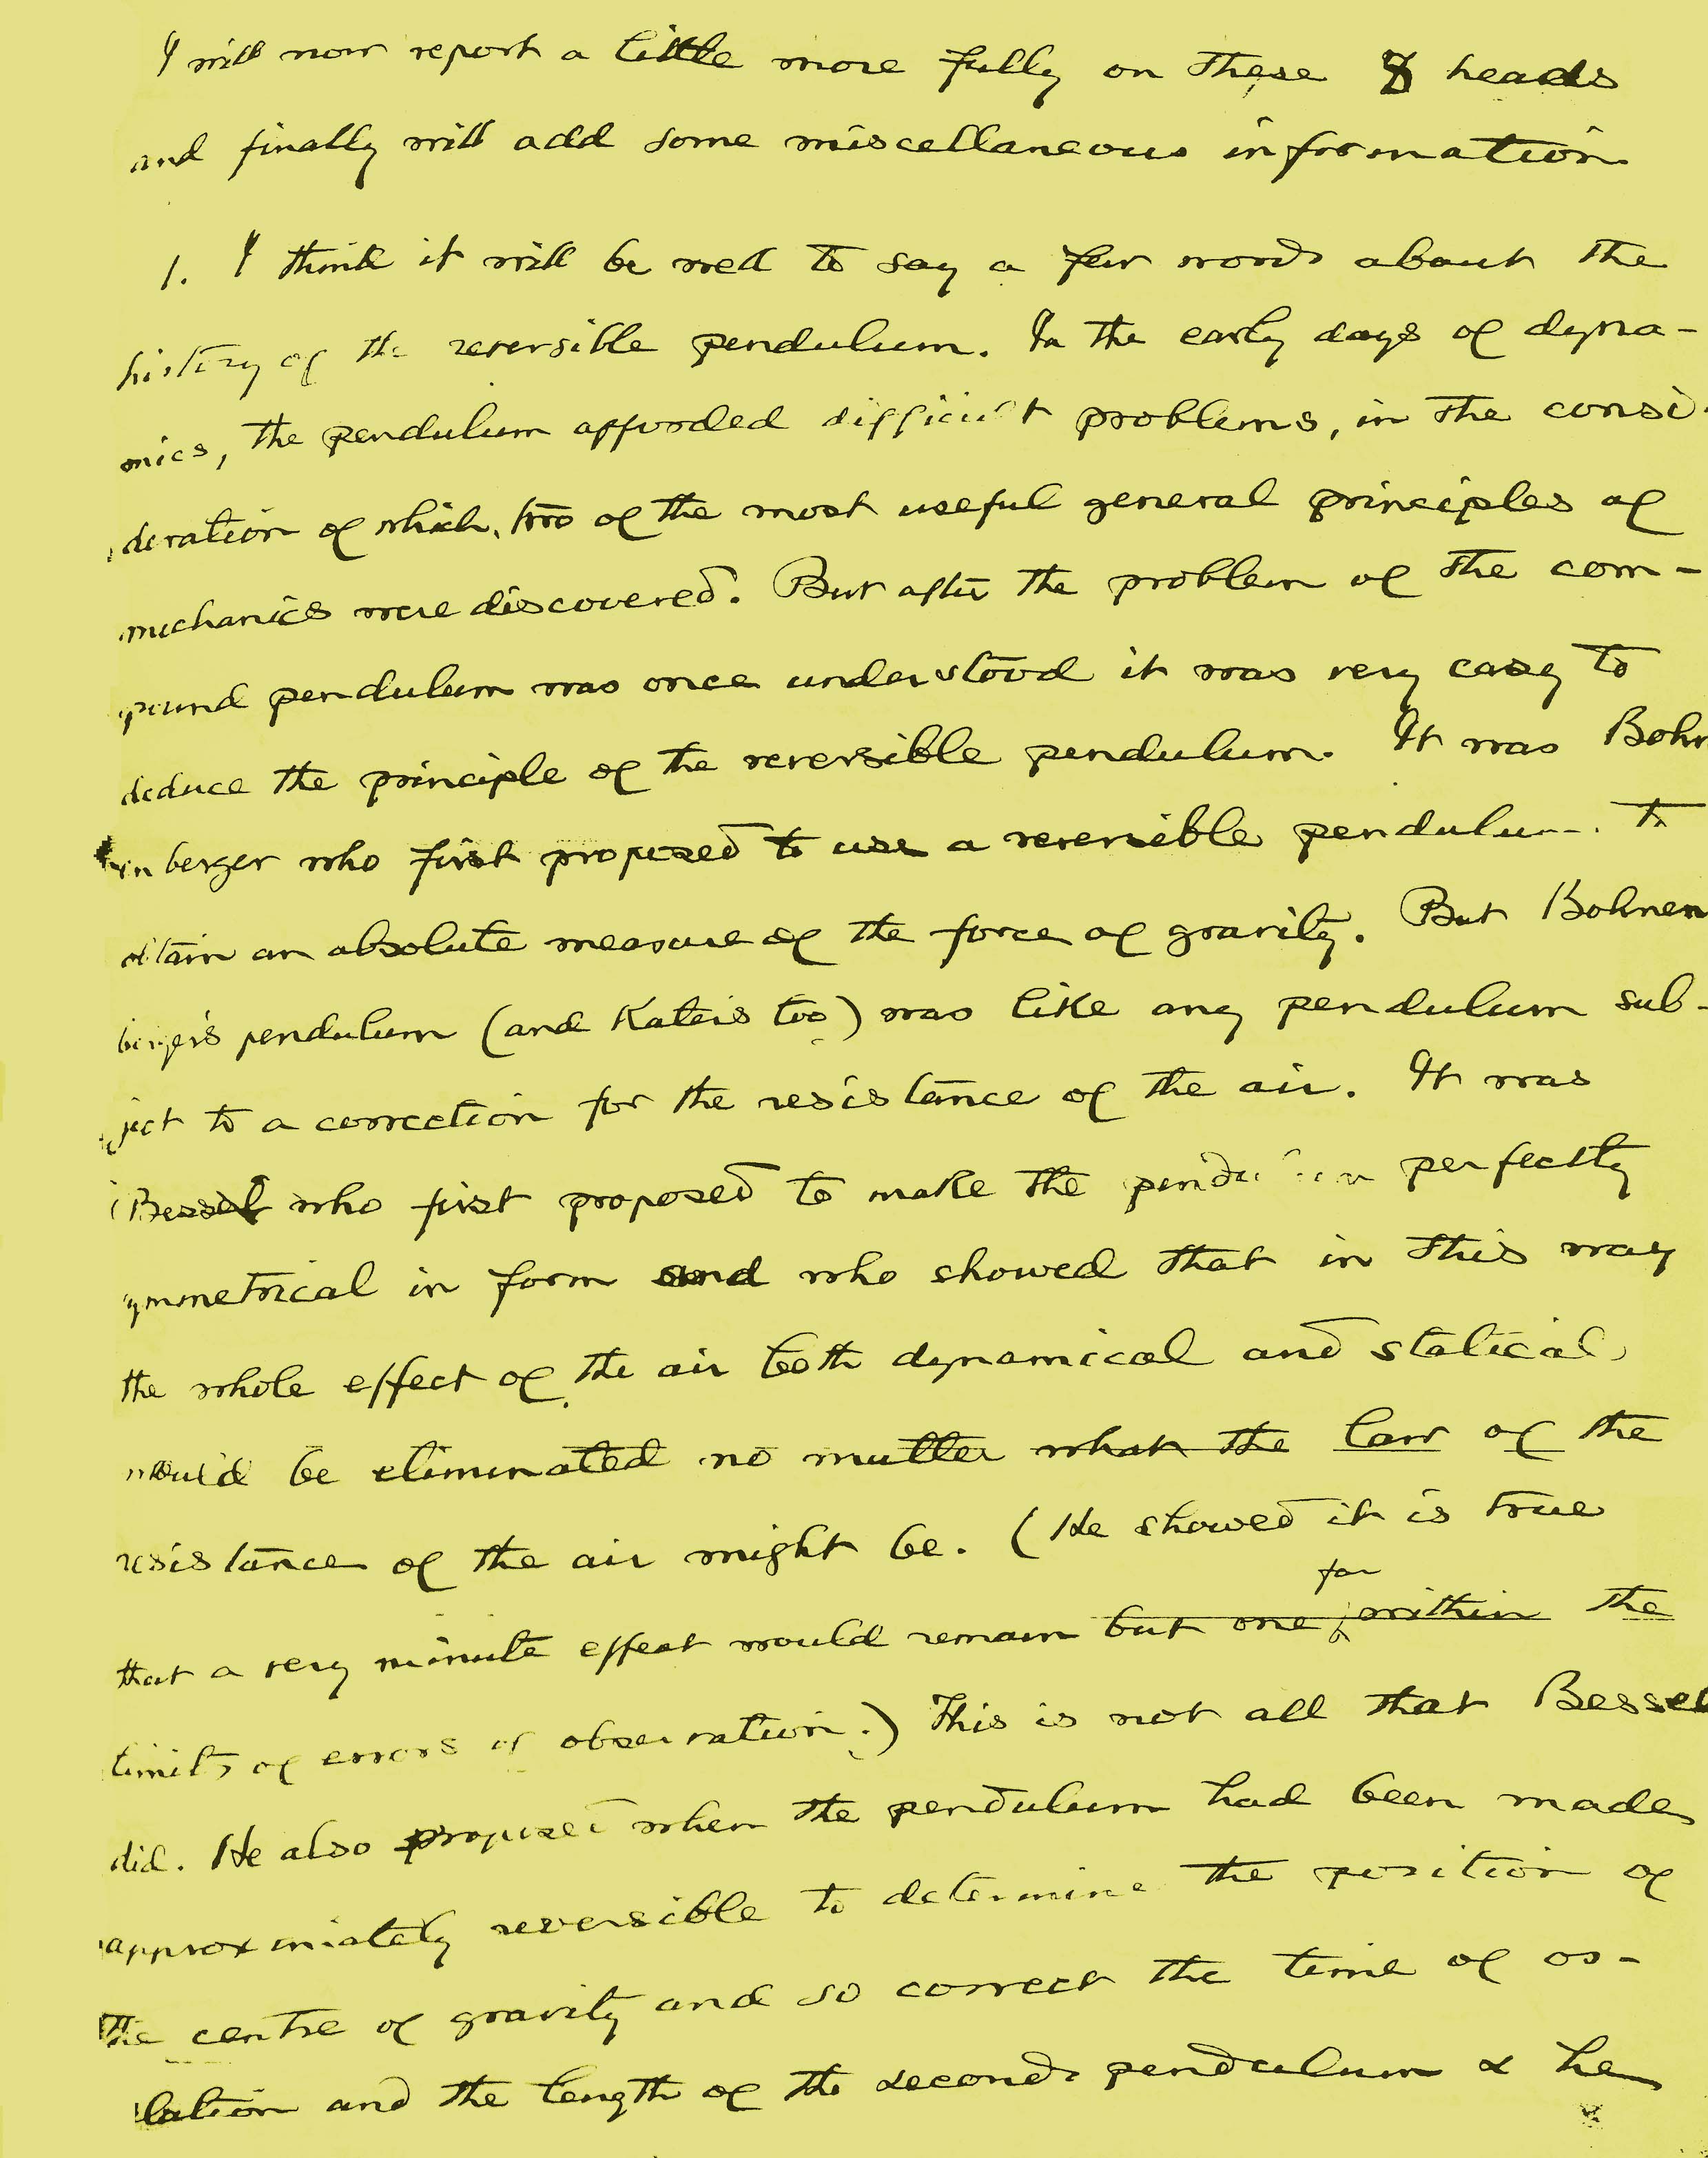 I will now report a little more fully on these 8 heads
and finally will add some miscellaneous information
1. I think it will be well to say a few words about the
history of the reversible pendulum. In the early days of dyna-
mics, the pendulum afforded difficult problems, in the consi-
deration of which, two of the most useful general principles of
mechanics were discovered. But after the problem of the com-
pound pendulum was once understood it was very easy to
deduce the principle of the reversible pendulum. It was Bohn
enberger who first proposed to use a reversible pendulum to
obtain an absolute measure of the force of gravity. But Bohnen
berger's pendulum (and Kater's too) was like any pendulum sub-
ject to a correction for the resistance of the air. It was
Bessel who first proposed to make the pendulum perfectly
symmetrical in form and who showed that in this way
the whole effect of the air both dynamical and statical
would be eliminated no matter what the law of the
resistance of the air might be. (He showed it is true
far
that a very minute effect would remain but one within the
limits of errors of observation.) This is not all that Bessel
did. He also proposed when the pendulum had been made
approximately reversible to determine the position of
the centre of gravity and so correct the time of os-
lation and the length of the seconds pendulum & he